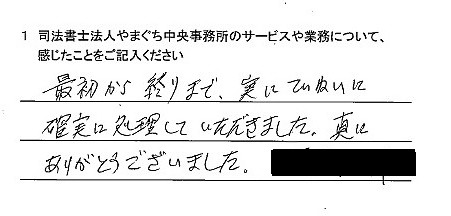 1 司法書士法人やまぐち中央事務所のサービスや業務について、
感じたことをご記入ください
最初から終りまで、実にていねいに
確実に処理していただきました。真に
ありがとうございました。